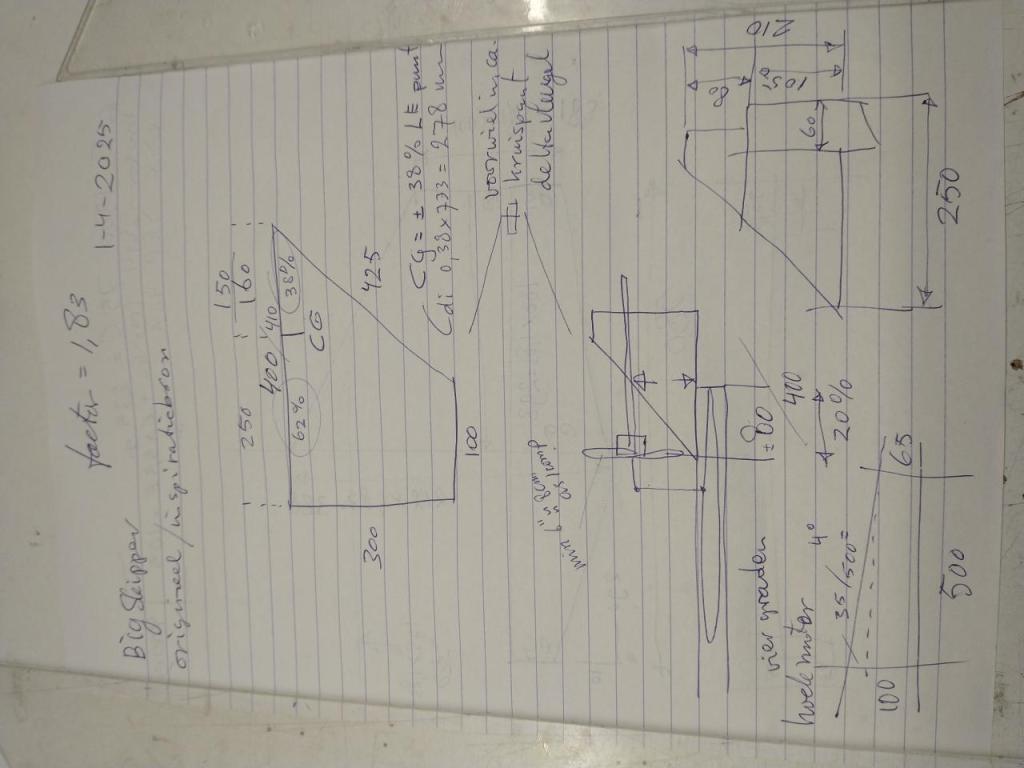 factor = 1,83
1-4-2025
Big Skipper
origineel / inspiratiebron
250
150
160
400/410
62%
38%
CG
300
425
100
CG = ± 38% LE punt
Cdi 0,38 x 733 = 278 mm
voorwiel in ca.
deltavleugel
min 6" = 8cm
as romp
± 80
vier graden
400
hoek motor 4°
20%
35/500 =
100
65
500
60
80
210
250